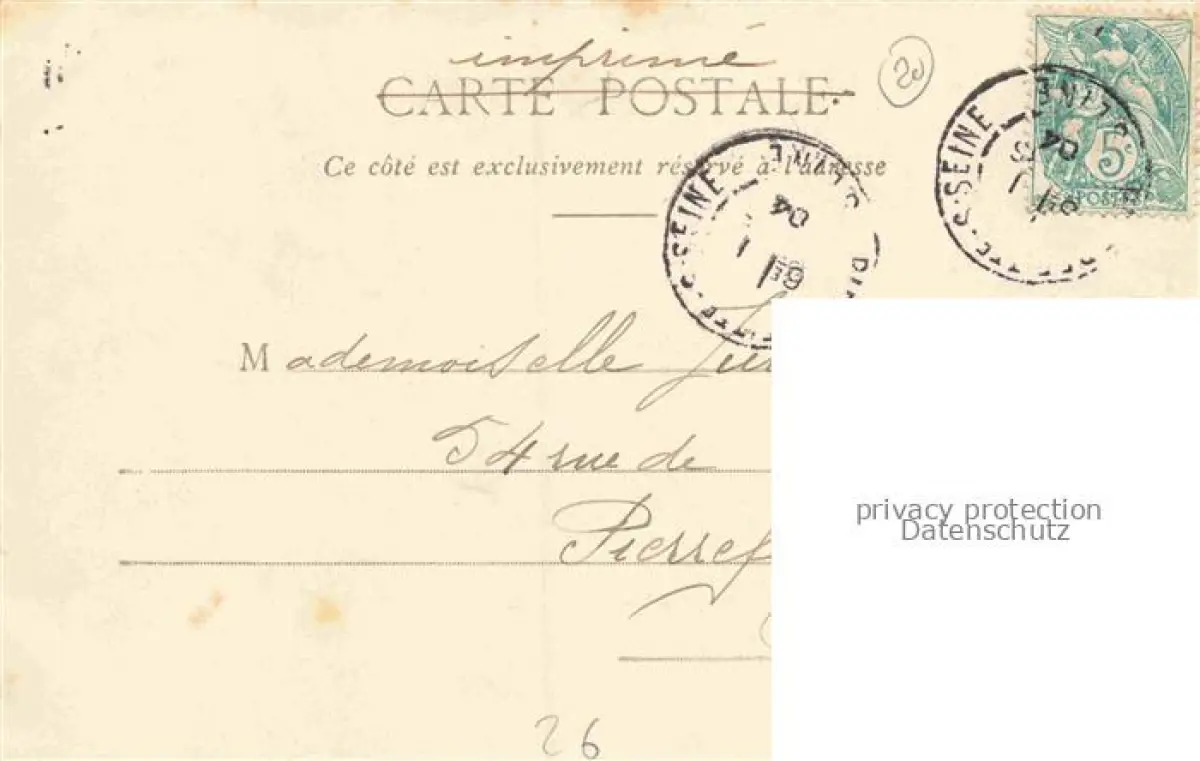 imprimé
20
CARTE POSTALE
Ce côté est exclusivement réservé à l'adresse
5c
POSTES
SEINE
04
SEINE
04
Mademoiselle
54 rue de
Pierref
privacy protection
Datenschutz
26